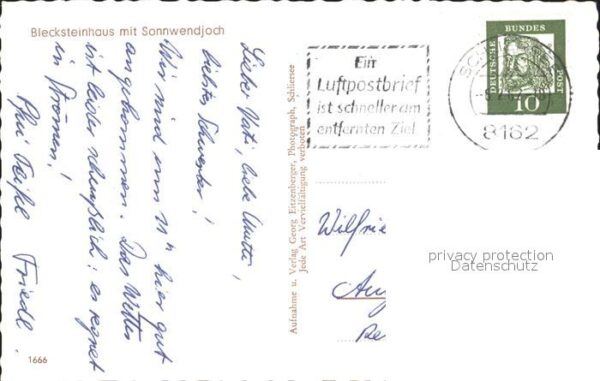 Blecksteinhaus mit Sonnwendjoch
Liebe Vati, liebe Mutti,
liebste Schwester!
Wir sind um 11h hier gut
angekommen. Das Wetter
ist leider scheußlich: es regnet
in Strömen!
Friedl.
1666
Aufnahme u. Verlag Georg Eitzenberger, Photograph, Schliersee
Jede Art Vervielfältigung verboten
Ein
Luftpostbrief
ist schneller am
entfernten Ziel
8162
DEUTSCHE BUNDES POST
10
Wilfrie
privacy protection
Datenschutz